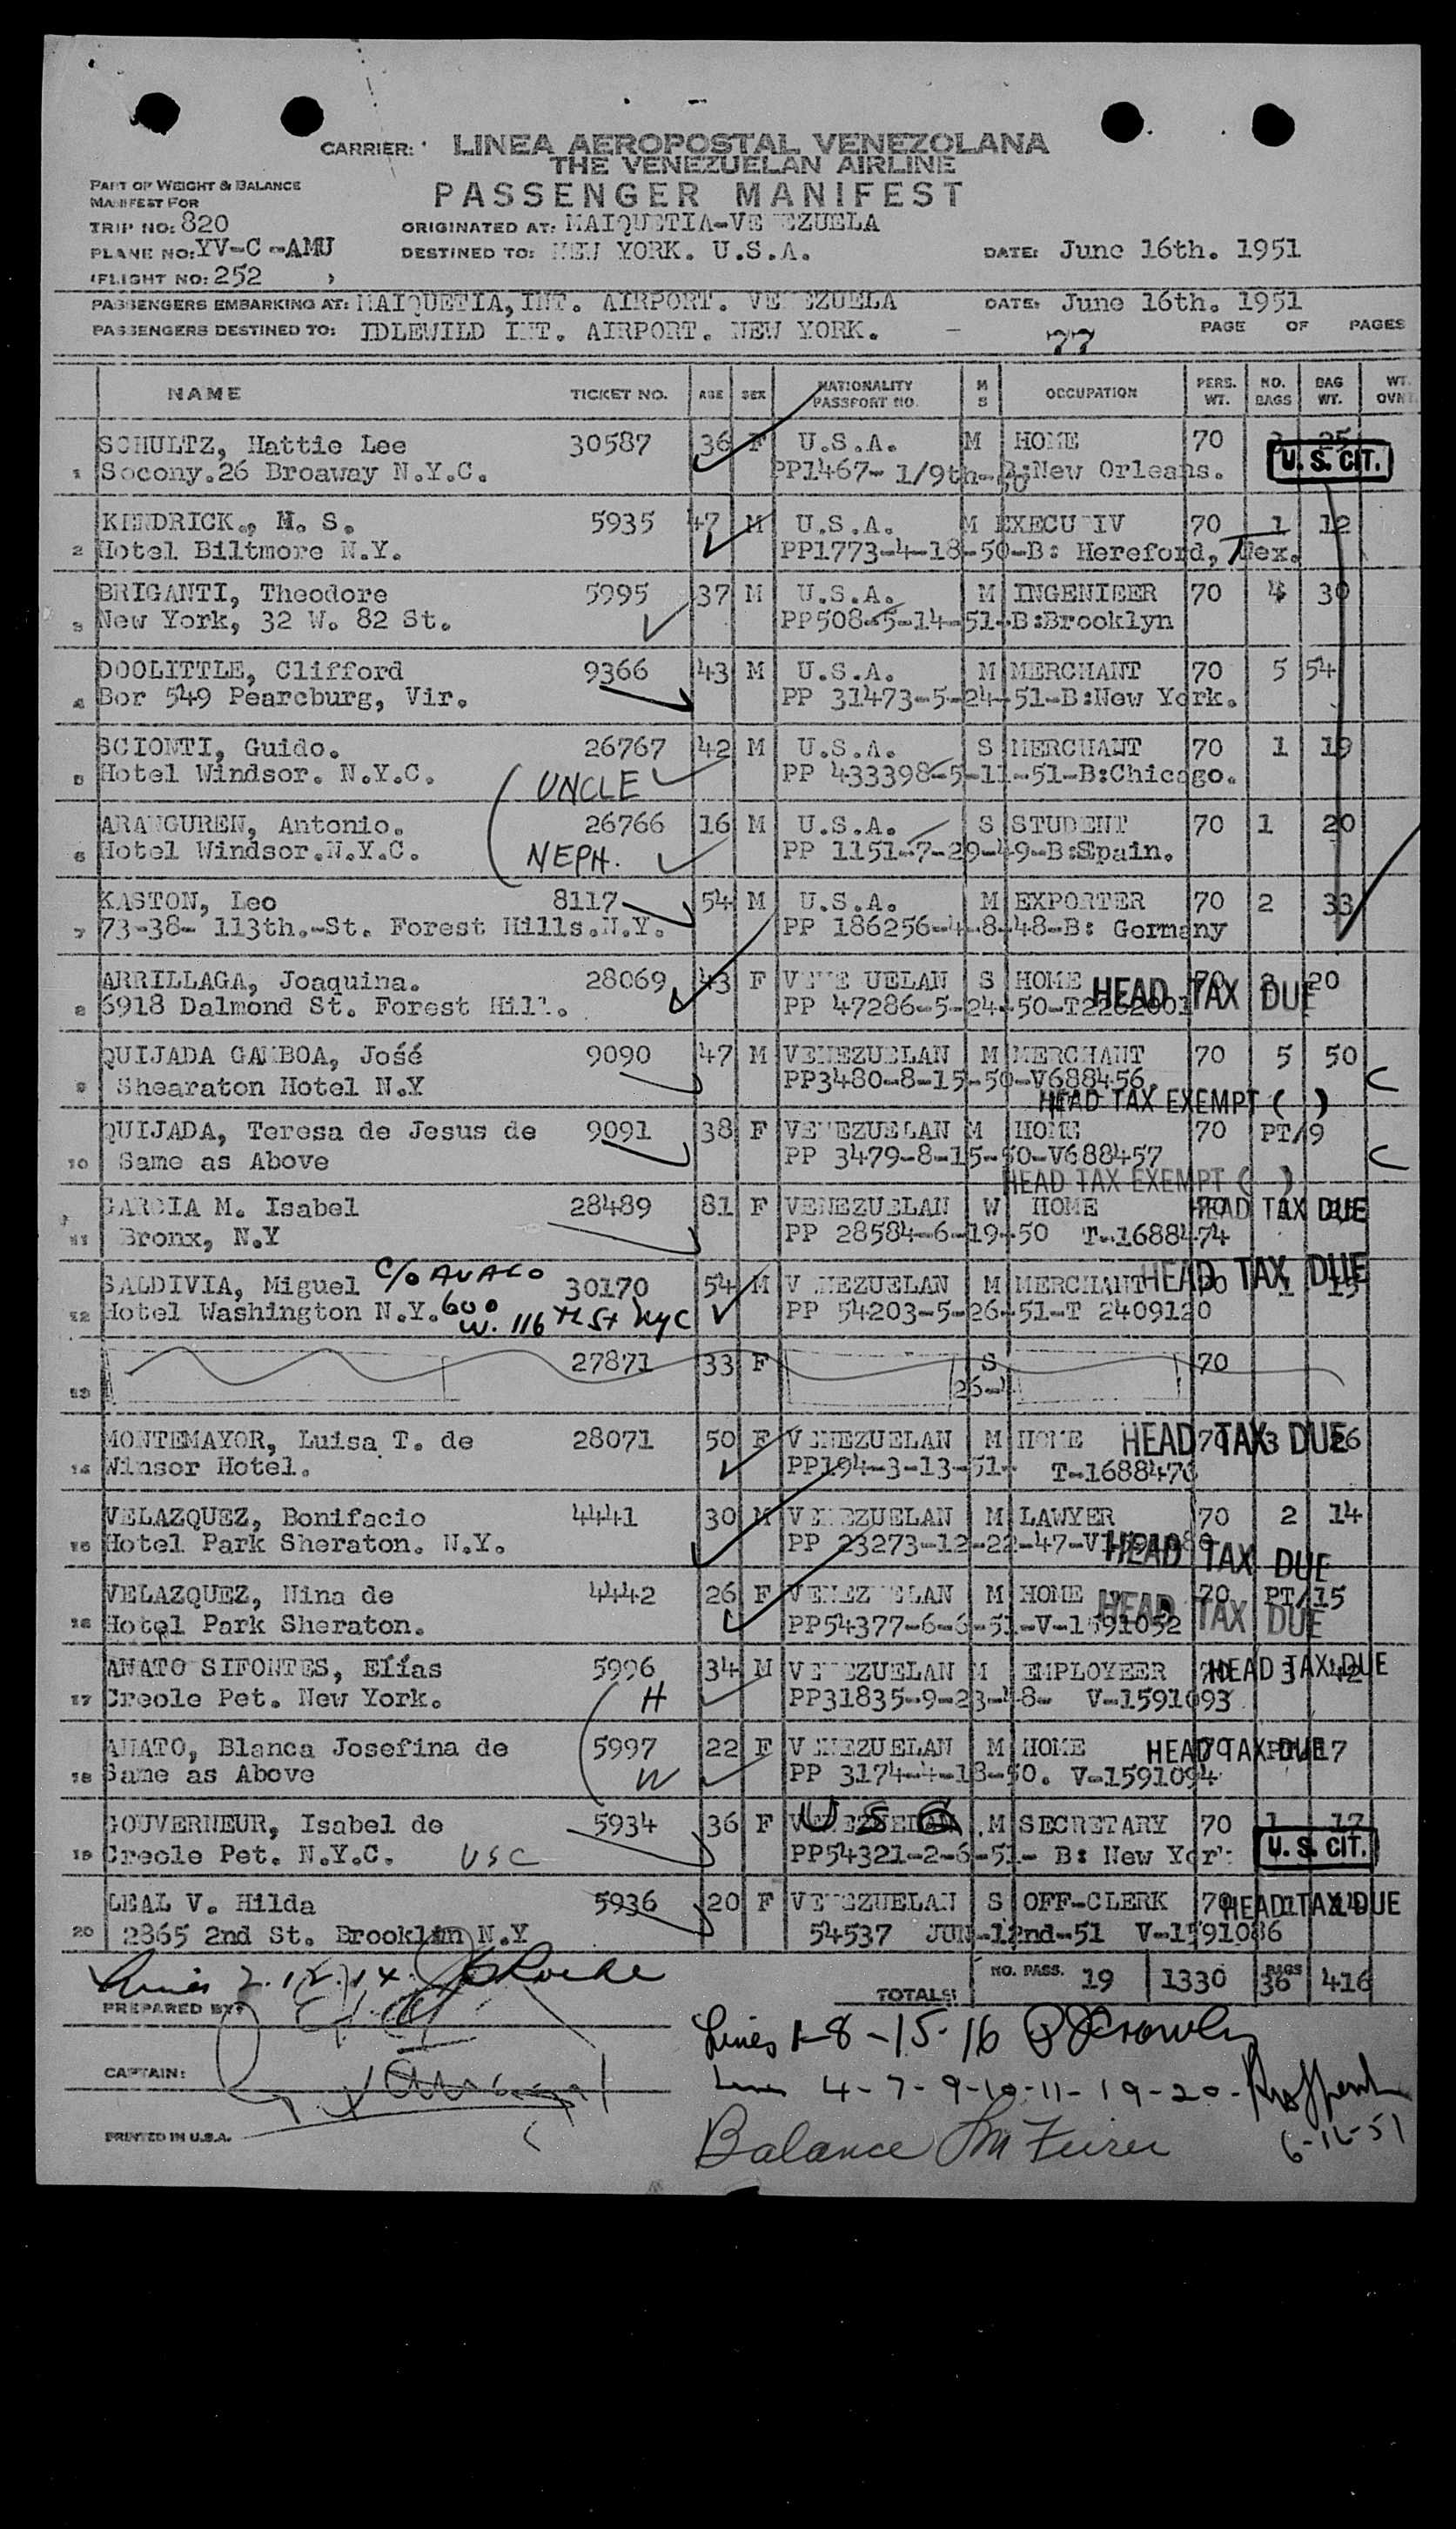 CARRIER: LINEA AEROPOSTAL VENEZOLANA
THE VENEZUELAN AIRLINE
PART OF WEIGHT & BALANCE
PASSENGER MANIFEST
MANIFEST FOR
TRIP NO: 820 ORIGINATED AT: MAIQUETIA-VE EZUELA
PLANE NO: YV-C-AMU DESTINED TO: NEW YORK. U.S.A. DATE: June 16th. 1951
(FLIGHT NO: 252 )
PASSENGERS EMBARKING AT: MAIQUETIA, INT. AIRPORT. VE EZUELA DATE: June 16th. 1951
PASSENGERS DESTINED TO: IDLEWILD INT. AIRPORT. NEW YORK. - 77 PAGE OF PAGES
NAME TICKET NO. AGE SEX NATIONALITY PASSPORT NO. M S OCCUPATION PERS. WT. NO. BAGS BAG WT. WT. OVNT.
SCHULTZ, Hattie Lee 30587 36 F U.S.A. M HOME 70 25
1 Socony.26 Broaway N.Y.C. PP1467- 1/9th- :New Orleans. U.S. CIT.
KENDRICK., M. S. 5935 47 M U.S.A. M EXECU IV 70 1 12
2 Hotel Biltmore N.Y. PP1773-4-18-50-B: Hereford, Tex.
BRIGANTI, Theodore 5995 37 M U.S.A. M INGENIEER 70 4 30
3 New York, 32 W. 82 St. PP508-5-14-51-B:Brooklyn
DOOLITTLE, Clifford 9366 43 M U.S.A. M MERCHANT 70 5 54
4 Bor 549 Pearcburg, Vir. PP 31473-5-24-51-B:New York.
SCIONTI, Guido. 26767 42 M U.S.A. S MERCHANT 70 1 19
5 Hotel Windsor. N.Y.C. ( UNCLE PP 433398-5-11-51-B:Chicago.
ARANGUREN, Antonio. 26766 16 M U.S.A. S STUDENT 70 1 20
6 Hotel Windsor.N.Y.C. NEPH. PP 1151-7-29-49-B:Spain.
KASTON, Leo 8117 54 M U.S.A. M EXPORTER 70 2 33
7 73-38- 113th.-St. Forest Hills.N.Y. PP 186256-4-8-48-B: Germany
ARRILLAGA, Joaquina. 28069 43 F VE E UELAN S HOME 70 2 20 HEAD TAX DUE
8 6918 Dalmond St. Forest Hill. PP 47286-5-24-50-T2262001
QUIJADA GAMBOA, José 9090 47 M VENEZUELAN M MERCHANT 70 5 50
9 Shearaton Hotel N.Y PP3480-8-15-50-V688456. C
HEAD TAX EXEMPT ( )
QUIJADA, Teresa de Jesus de 9091 38 F VENEZUELAN M HOME 70 PT/9
10 Same as Above PP 3479-8-15-50-V688457 C
HEAD TAX EXEMPT ( )
GARCIA M. Isabel 28489 81 F VENEZUELAN W HOME HEAD TAX DUE
11 Bronx, N.Y PP 28584-6-19-50 T-1688474
SALDIVIA, Miguel 30170 54 M V NEZUELAN M MERCHANT 70 1 15 HEAD TAX DUE
12 Hotel Washington N.Y. 600 W. 116 TH St NYC PP 54203-5-26-51-T 2409120
27871 33 F S 70
13 26-
MONTEMAYOR, Luisa T. de 28071 50 F V NEZUELAN M HOME 70 3 26 HEAD TAX DUE
14 Winsor Hotel. PP194-3-13-51- T-1688476
VELAZQUEZ, Bonifacio 4441 30 M V NEZUELAN M LAWYER 70 2 14
15 Hotel Park Sheraton. N.Y. PP 23273-12-22-47- HEAD TAX DUE
VELAZQUEZ, Nina de 4442 26 F VENEZ ELAN M HOME 70 PT/15
16 Hotel Park Sheraton. PP54377-6-6-51-V-1591052 HEAD TAX DUE
AMATO SIFONTES, Elías 5996 34 M VE EZUELAN M EMPLOYEER 70 3 42 HEAD TAX DUE
17 Creole Pet. New York. ( H PP31835-9-23-48- V-1591093
AMATO, Blanca Josefina de 5997 22 F V NEZUELAN M HOME 70 PT/17 HEAD TAX DUE
18 Same as Above W PP 3174-4-18-50. V-1591094
GOUVERNEUR, Isabel de 5934 36 F VENEZUELAN U S C M SECRETARY 70 1 17
19 Creole Pet. N.Y.C. USC PP54321-2-6-51- B: New York U.S. CIT.
LEAL V. Hilda 5936 20 F VENEZUELAN S OFF-CLERK 70 HEAD TAX DUE
20 2865 2nd St. Brooklin N.Y 54537 JUN-12nd-51 V-1591086
Lines 2.12.14.
TOTALS: NO. PASS. 19 1330 BAGS 36 416
PREPARED BY:
Lines 1-8-15-16
CAPTAIN:
Lines 4-7-9-10-11-19-20-
PRINTED IN U.S.A.
Balance
6-16-51